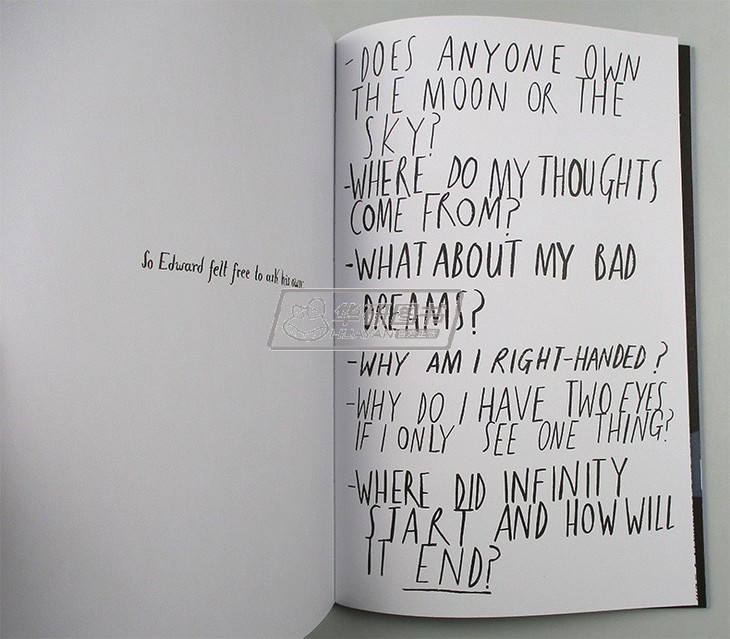 So Edward felt free to ask his own:
- DOES ANYONE OWN
THE MOON OR THE
SKY?
-WHERE DO MY THOUGHTS
COME FROM?
-WHAT ABOUT MY BAD
DREAMS?
-WHY AM I RIGHT-HANDED?
-WHY DO I HAVE TWO EYES
IF I ONLY SEE ONE THING?
-WHERE DID INFINITY
START AND HOW WILL
IT END?